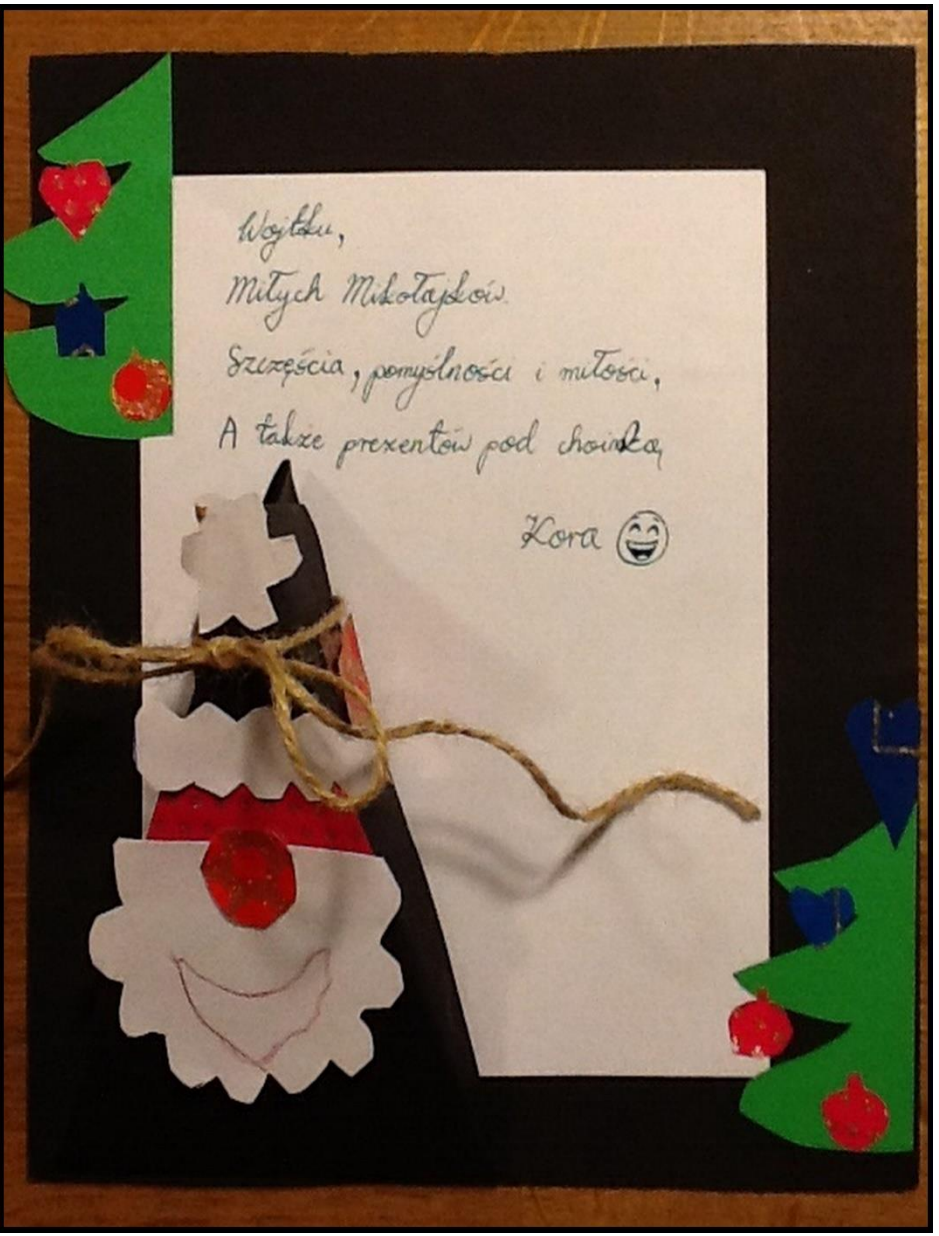 Wojtku,
Miłych Mikołajków.
Szczęścia, pomyślności i miłości,
A także prezentów pod choinką,
Kora